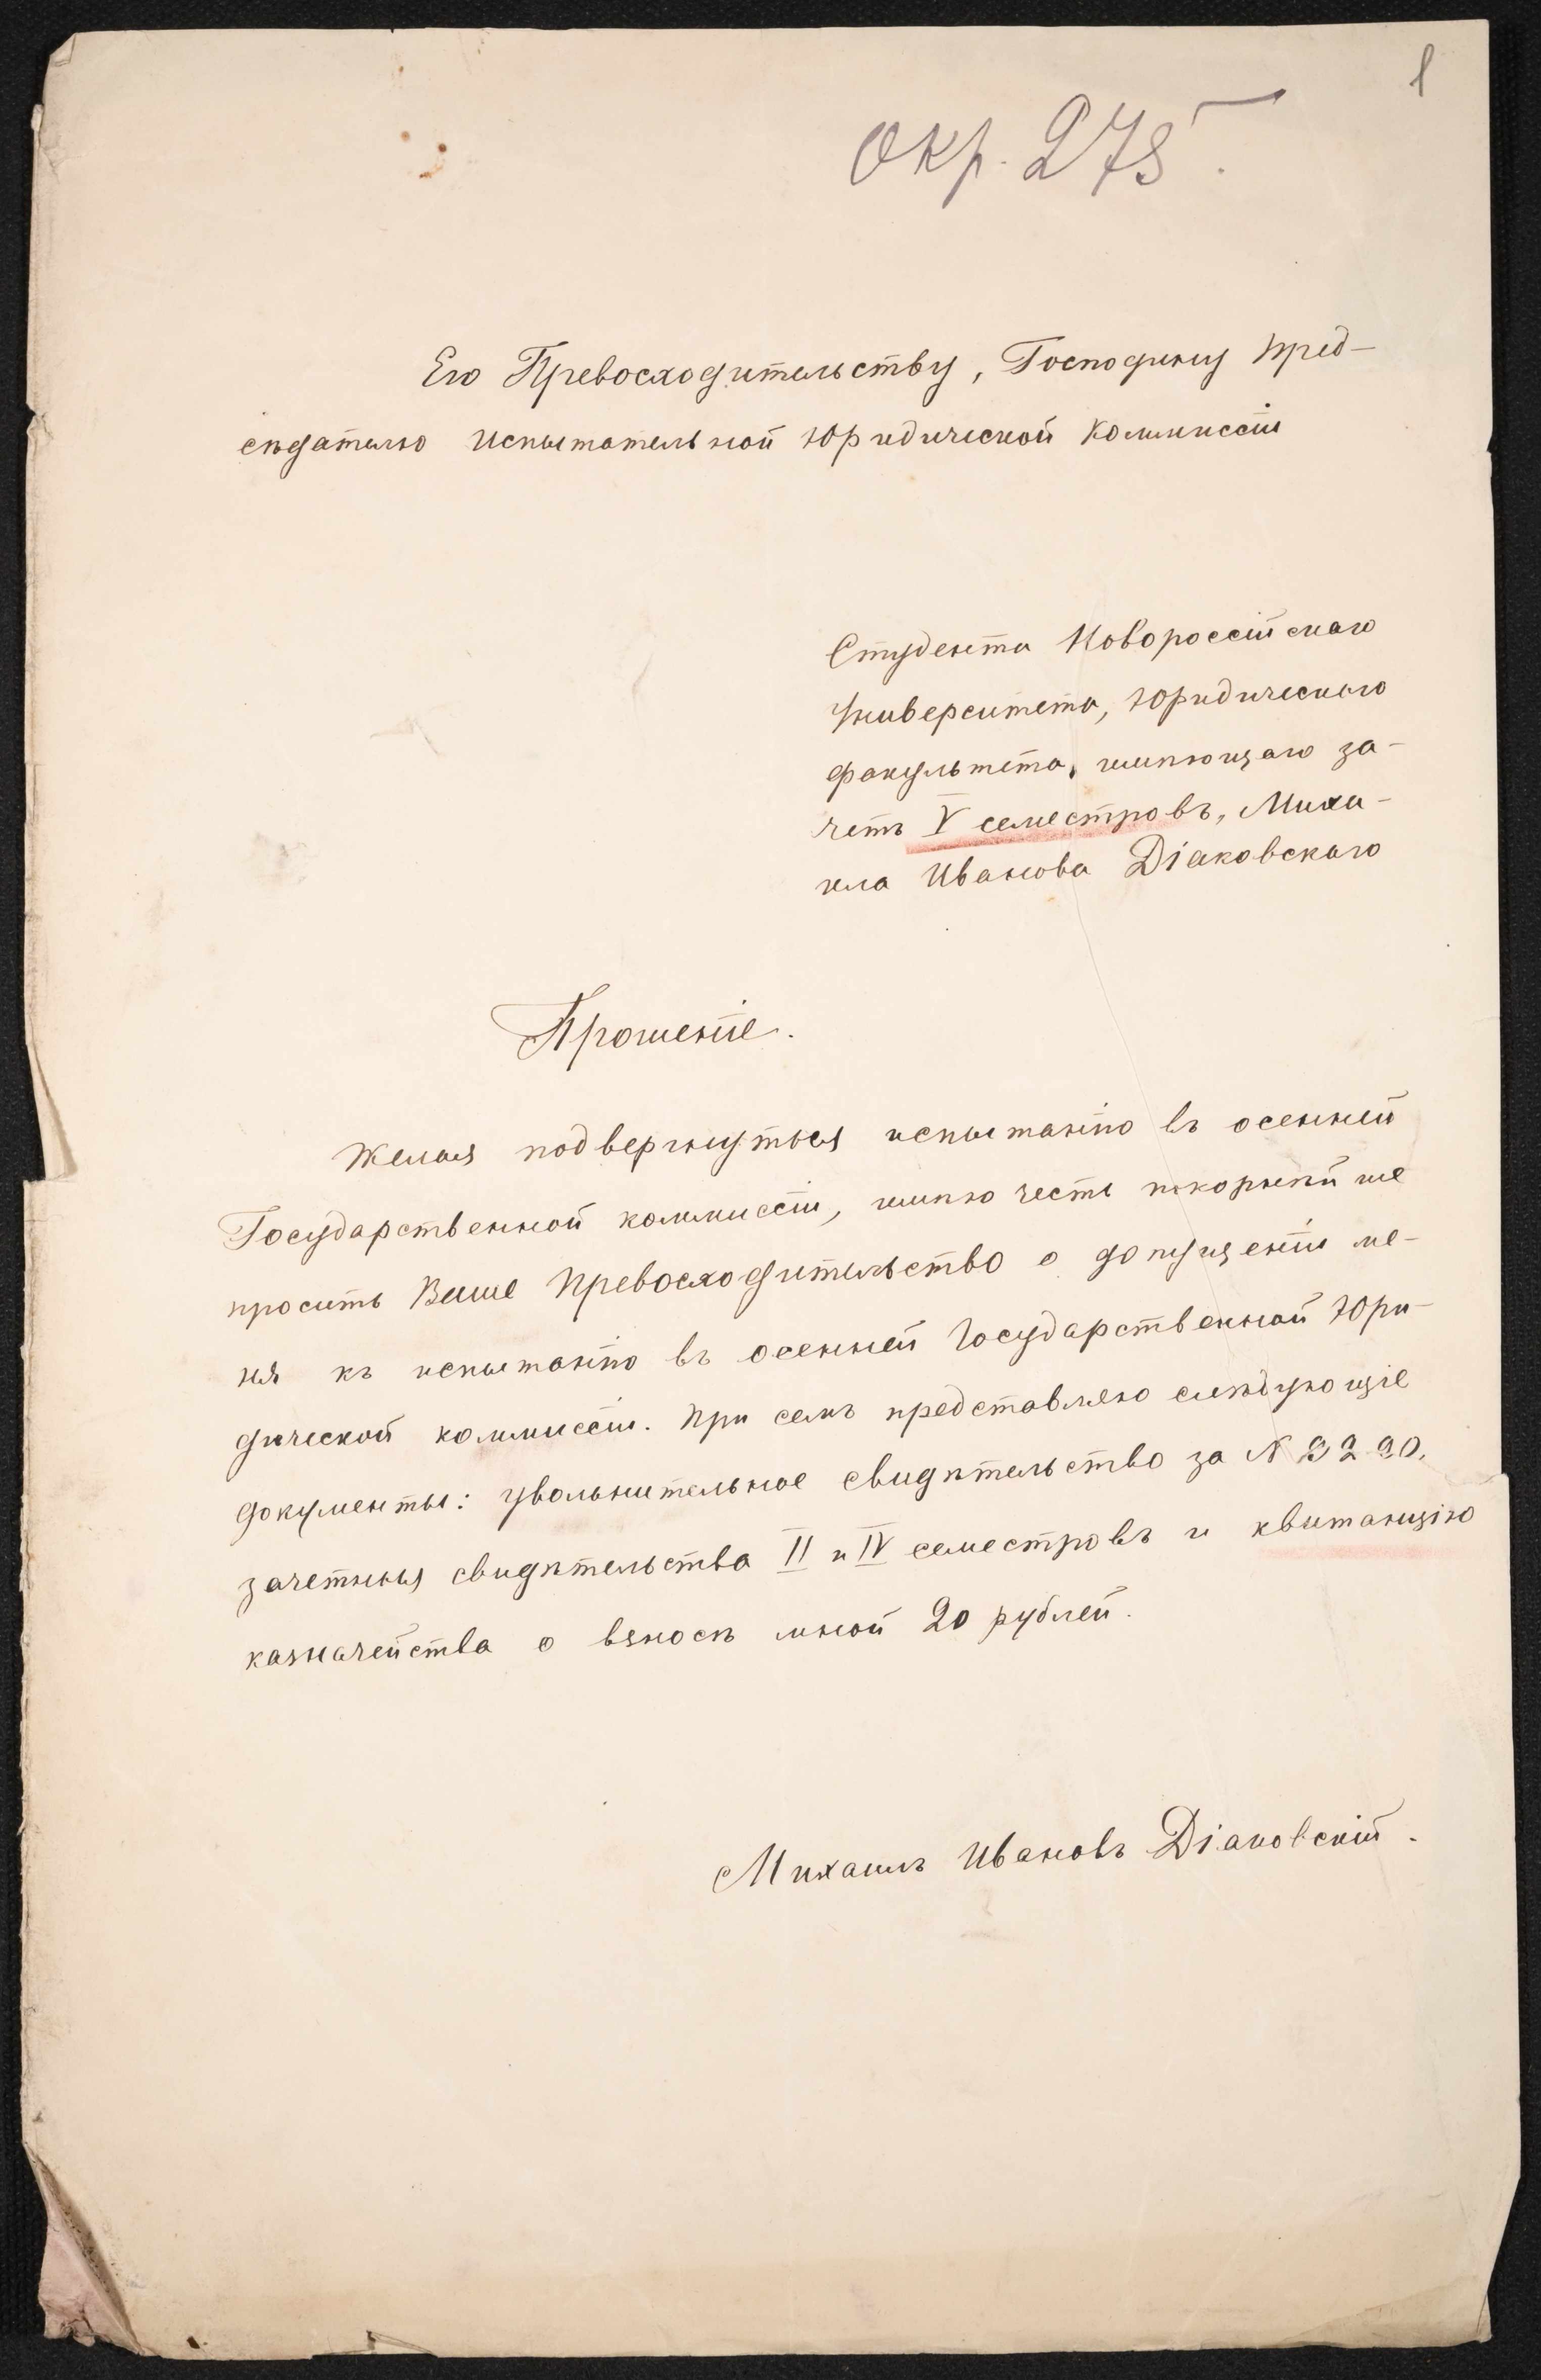 1
Окр. 275.
Его Превосходительству, Господину Пред-
сѣдателю Испытательной Юридической Коммиссіи
Студента Новороссійскаго
Университета, Юридическаго
факультета, имѣющаго за-
четъ V семестровъ, Миха-
ила Иванова Діаковскаго
Прошеніе.
Желая подвергнуться испытанію въ осенней
Государственной коммиссіи, имѣю честь покорнѣйше
просить Ваше Превосходительство о допущеніи ме-
ня къ испытанію въ осенней Государственной Юри-
дической коммиссіи. При семъ представляю слѣдующіе
документы: увольнительное свидѣтельство за N 3220,
зачетныя свидѣтельства II и IV семестровъ и квитанцію
казначейства о взносѣ мной 20 рублей.
Михаилъ Ивановъ Діаковскій.